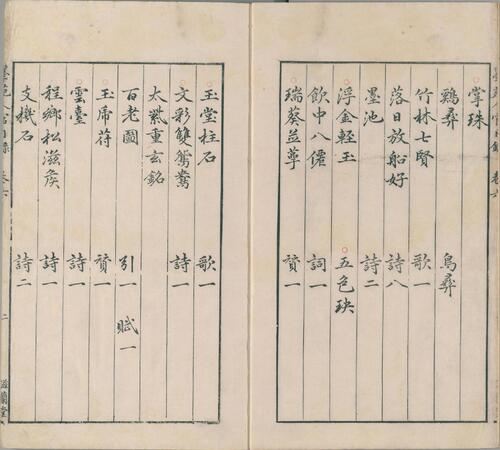 掌珠
鷄彞 鳥彞
竹林七賢 歌一
落日放船好 詩八
墨池 詩二
浮金輕玉 五色玦
飲中八僊 詞一
瑞葵並萼 贊一
玉堂柱石 歌一
文彩雙鴛鴦 詩一
太紫重玄銘
百老圖 引一 賦一
玉虎符 贊一
雲臺 詩一
程鄉松滋矦 詩一
支機石 詩二
目錄 卷六 二 滋蘭堂